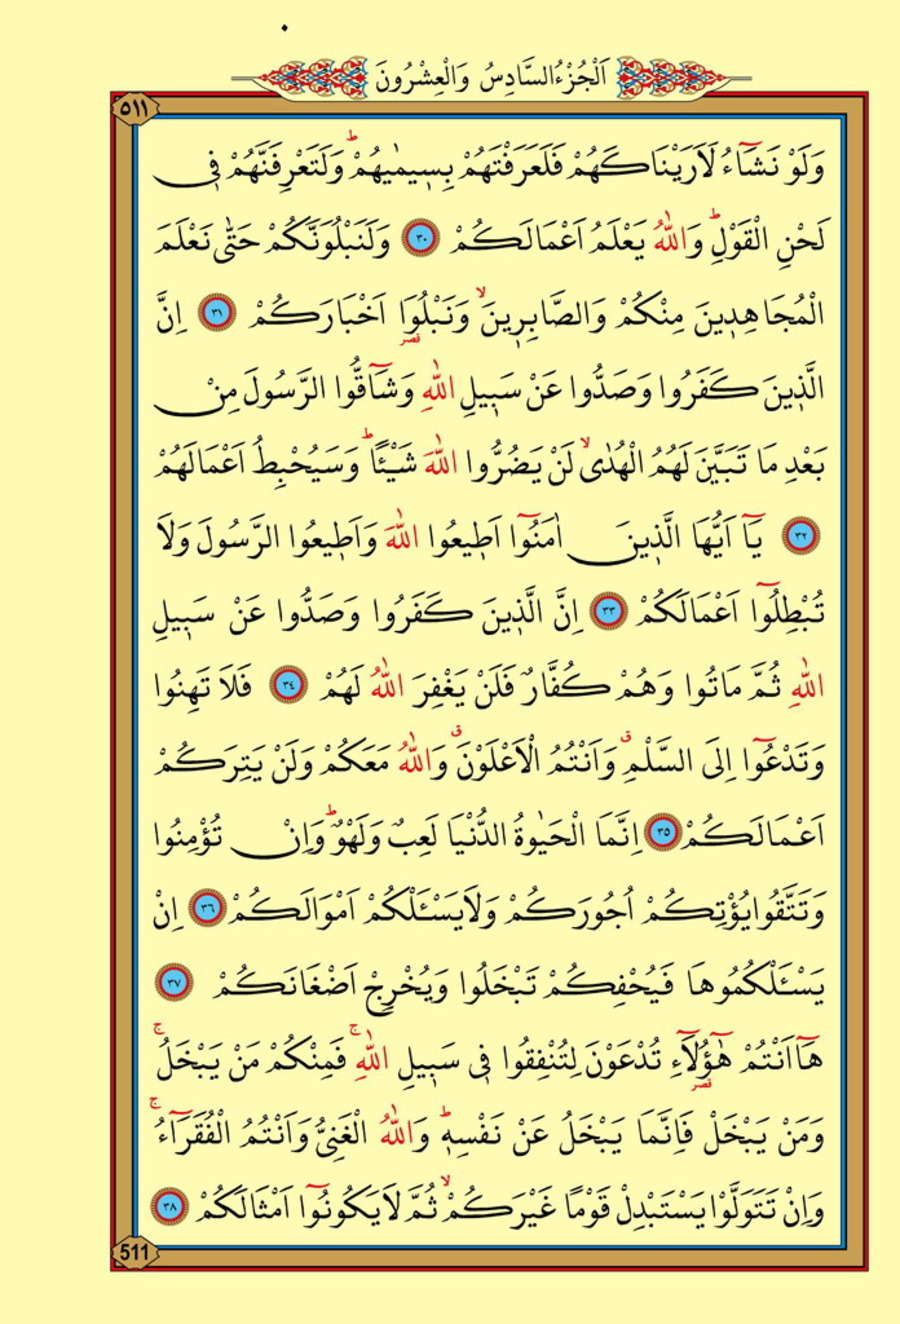 اَلْجُزْءُ السَّادِسُ وَالْعِشْرُونَ
٥١١
وَلَوْ نَشَٓاءُ لَاَرَيْنَاكَهُمْ فَلَعَرَفْتَهُمْ بِسِيمٰيهُمْۜ وَلَتَعْرِفَنَّهُمْ ف۪ي
لَحْنِ الْقَوْلِۜ وَاللّٰهُ يَعْلَمُ اَعْمَالَكُمْ ﴿٣٠﴾ وَلَنَبْلُوَنَّكُمْ حَتّٰى نَعْلَمَ
الْمُجَاهِد۪ينَ مِنْكُمْ وَالصَّابِر۪ينَۙ وَنَبْلُوَا اَخْبَارَكُمْ ﴿٣١﴾ اِنَّ
قصر
الَّذ۪ينَ كَفَرُوا وَصَدُّوا عَنْ سَب۪يلِ اللّٰهِ وَشَٓاقُّوا الرَّسُولَ مِنْ
بَعْدِ مَا تَبَيَّنَ لَهُمُ الْهُدٰىۙ لَنْ يَضُرُّوا اللّٰهَ شَيْـًٔاۜ وَسَيُحْبِطُ اَعْمَالَهُمْ
﴿٣٢﴾ يَٓا اَيُّهَا الَّذ۪ينَ اٰمَنُٓوا اَط۪يعُوا اللّٰهَ وَاَط۪يعُوا الرَّسُولَ وَلَا
تُبْطِلُٓوا اَعْمَالَكُمْ ﴿٣٣﴾ اِنَّ الَّذ۪ينَ كَفَرُوا وَصَدُّوا عَنْ سَب۪يلِ
اللّٰهِ ثُمَّ مَاتُوا وَهُمْ كُفَّارٌ فَلَنْ يَغْفِرَ اللّٰهُ لَهُمْ ﴿٣٤﴾ فَلَا تَهِنُوا
وَتَدْعُٓوا اِلَى السَّلْمِۗ وَاَنْتُمُ الْاَعْلَوْنَۗ وَاللّٰهُ مَعَكُمْ وَلَنْ يَتِرَكُمْ
اَعْمَالَكُمْ ﴿٣٥﴾ اِنَّمَا الْحَيٰوةُ الدُّنْيَا لَعِبٌ وَلَهْوٌۜ وَاِنْ تُؤْمِنُوا
وَتَتَّقُوا يُؤْتِكُمْ اُجُورَكُمْ وَلَا يَسْـَٔلْكُمْ اَمْوَالَكُمْ ﴿٣٦﴾ اِنْ
يَسْـَٔلْكُمُوهَا فَيُحْفِكُمْ تَبْخَلُوا وَيُخْرِجْ اَضْغَانَكُمْ ﴿٣٧﴾
هَٓا اَنْتُمْ هٰٓؤُ۬لَٓاءِ تُدْعَوْنَ لِتُنْفِقُوا ف۪ي سَب۪يلِ اللّٰهِۚ فَمِنْكُمْ مَنْ يَبْخَلُۚ
قصر
وَمَنْ يَبْخَلْ فَاِنَّمَا يَبْخَلُ عَنْ نَفْسِه۪ۜ وَاللّٰهُ الْغَنِيُّ وَاَنْتُمُ الْفُقَرَٓاءُۚ
وَاِنْ تَتَوَلَّوْا يَسْتَبْدِلْ قَوْمًا غَيْرَكُمْۙ ثُمَّ لَا يَكُونُٓوا اَمْثَالَكُمْ ﴿٣٨﴾
511